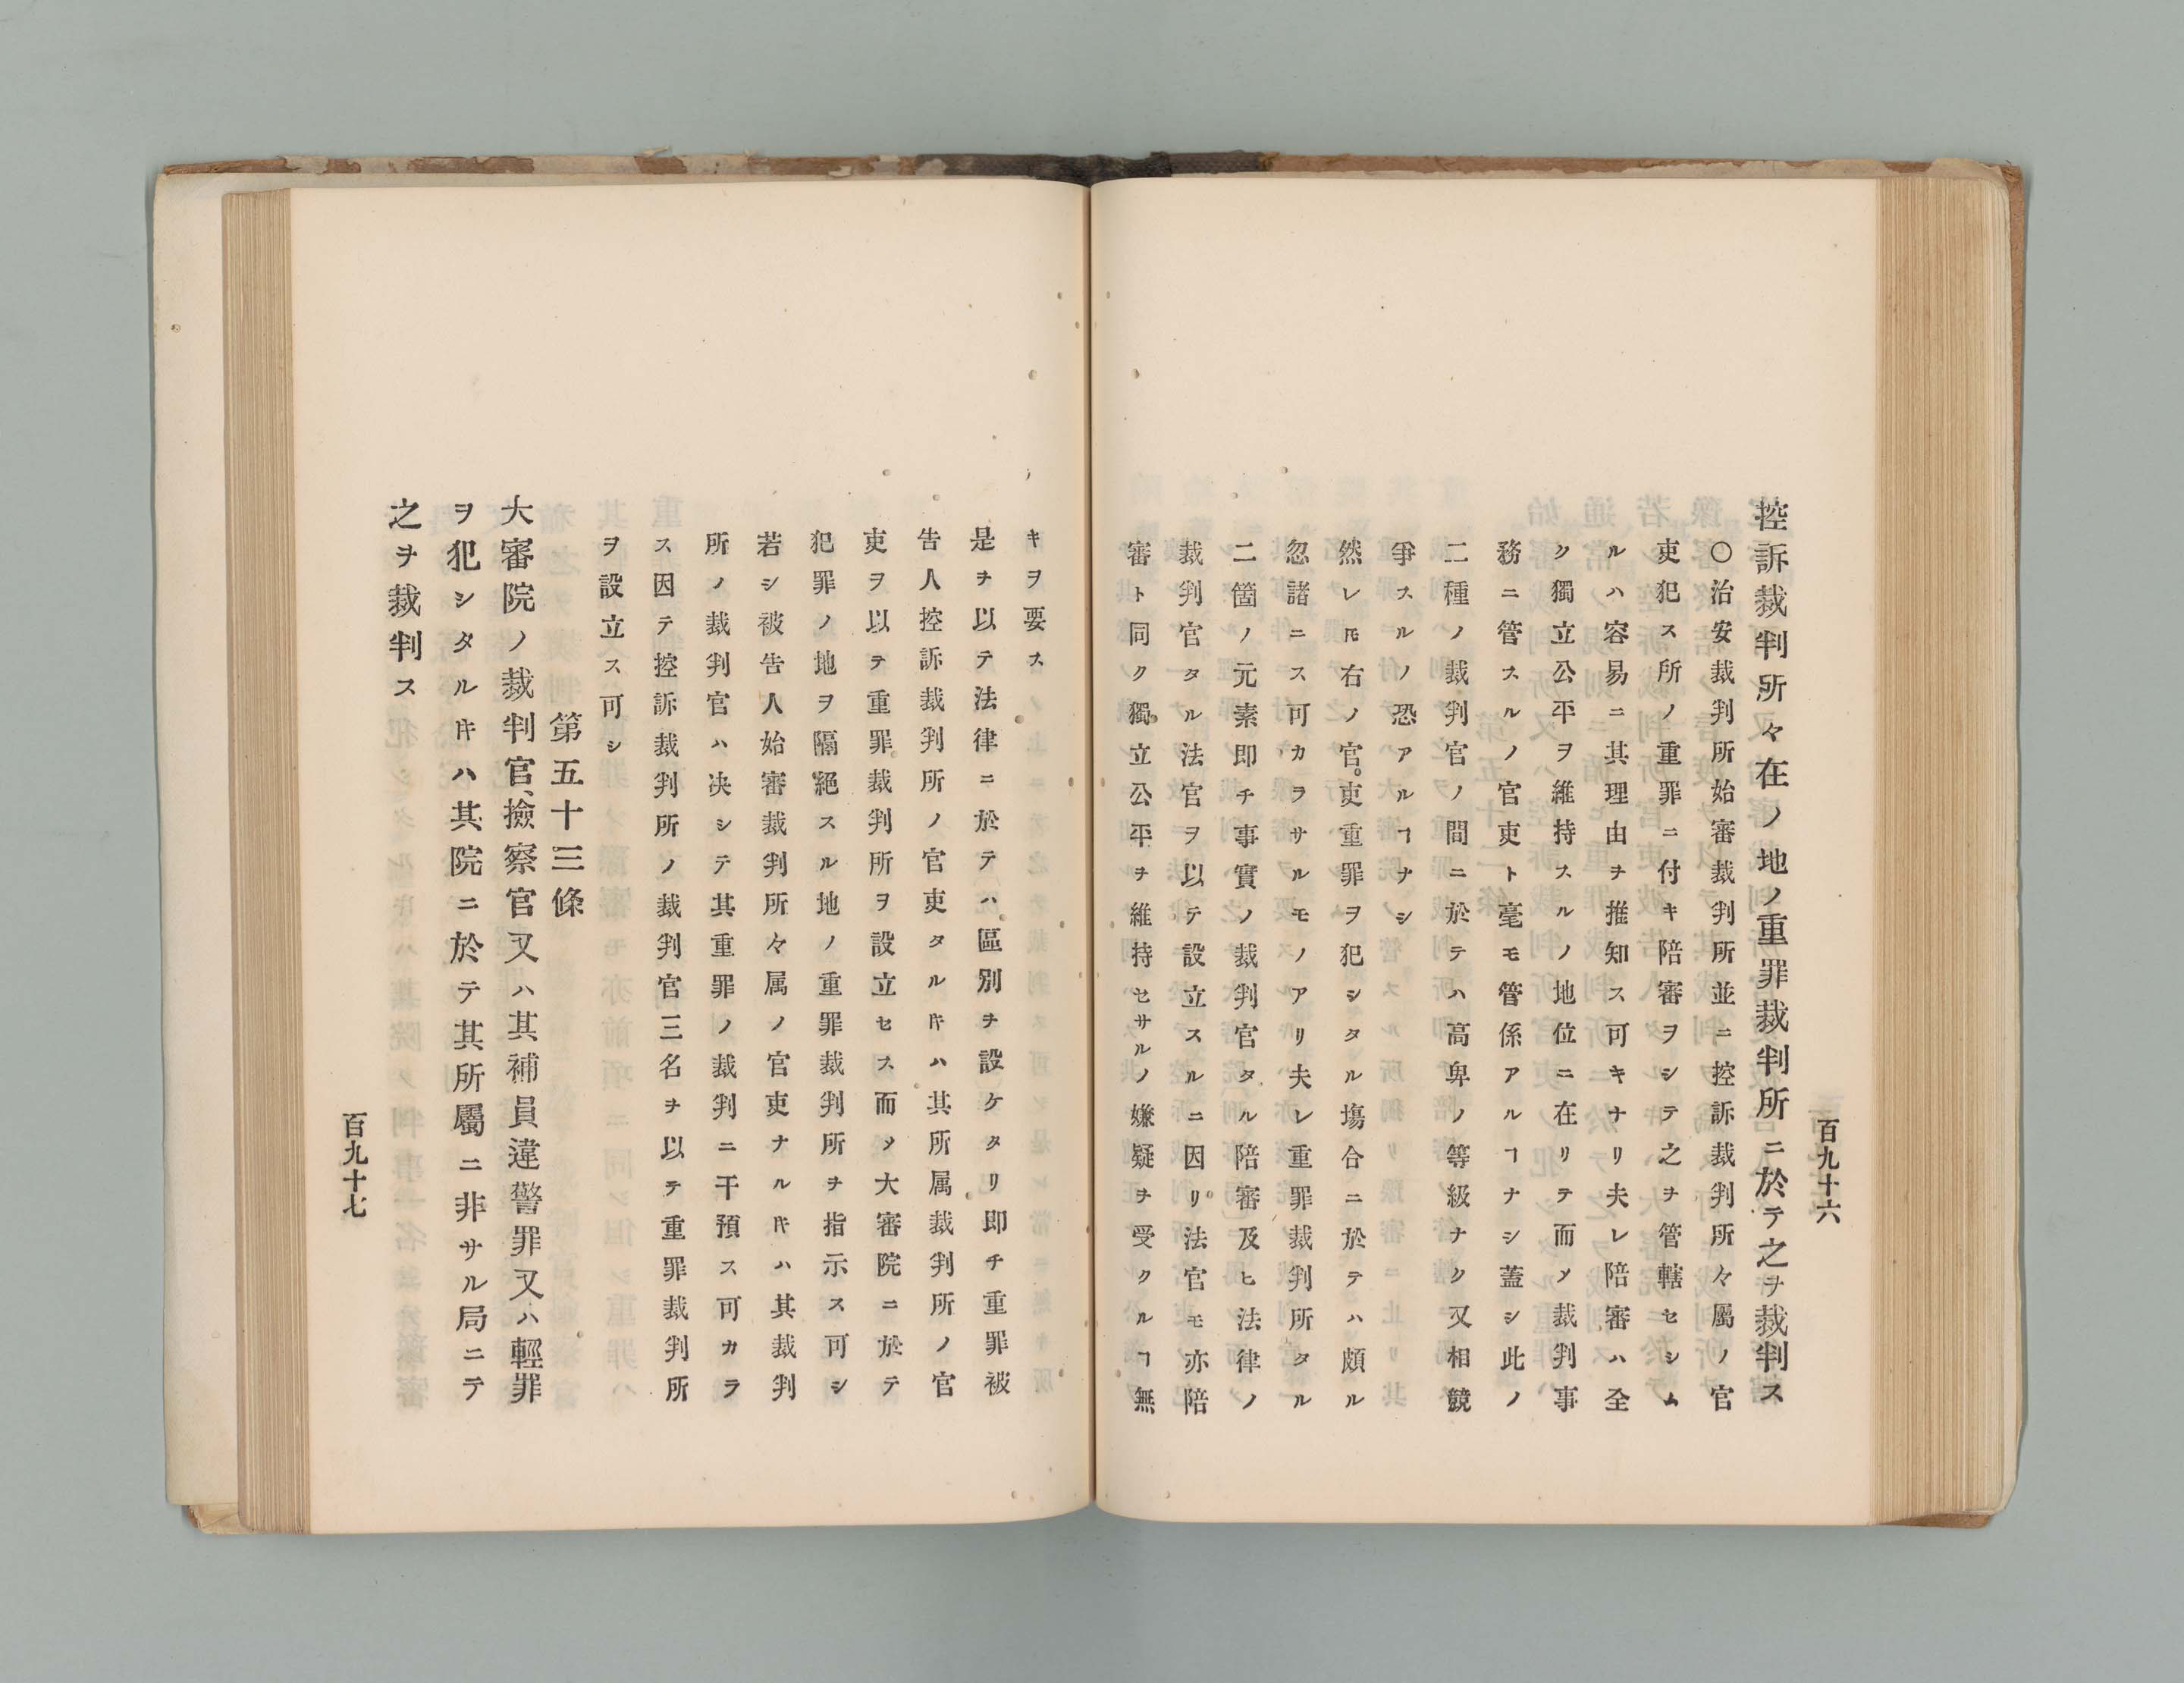 百九十六
控訴裁判所々在ノ地ノ重罪裁判所ニ於テ之ヲ裁判ス
〇治安裁判所始審裁判所並ニ控訴裁判所々屬ノ官
吏犯ス所ノ重罪ニ付キ陪審ヲシテ之ヲ管轄セシム
ルハ容易ニ其理由ヲ推知ス可キナリ夫レ陪審ハ全
ク獨立公平ヲ維持スルノ地位ニ在リテ而メ裁判事
務ニ管スルノ官吏ト毫モ管係アルヿナシ蓋シ此ノ
二種ノ裁判官ノ間ニ於テハ高卑ノ等級ナク又相競
爭スルノ恐アルヿナシ
然レ𪜈右ノ官吏重罪ヲ犯シタル塲合ニ於テハ頗ル
忽諸ニス可カラサルモノアリ夫レ重罪裁判所タル
二箇ノ元素即チ事實ノ裁判官タル陪審及ヒ法律ノ
裁判官タル法官ヲ以テ設立スルニ因リ法官モ亦陪
審ト同ク獨立公平ヲ維持セサルノ嫌疑ヲ受クルヿ無
キヲ要ス
是ヲ以テ法律ニ於テハ區別ヲ設ケタリ即チ重罪被
告人控訴裁判所ノ官吏タルㆁハ其所属裁判所ノ官
吏ヲ以テ重罪裁判所ヲ設立セス而メ大審院ニ於テ
犯罪ノ地ヲ隔絕スル地ノ重罪裁判所ヲ指示ス可シ
若シ被告人始審裁判所々属ノ官吏ナルㆁハ其裁判
所ノ裁判官ハ决シテ其重罪ノ裁判ニ干預ス可カラ
ス因テ控訴裁判所ノ裁判官三名ヲ以テ重罪裁判所
ヲ設立ス可シ
第五十三條
大審院ノ裁判官、撿察官又ハ其補員違警罪又ハ輕罪
ヲ犯シタルㆁハ其院ニ於テ其所屬ニ非サル局ニテ
之ヲ裁判ス
百九十七